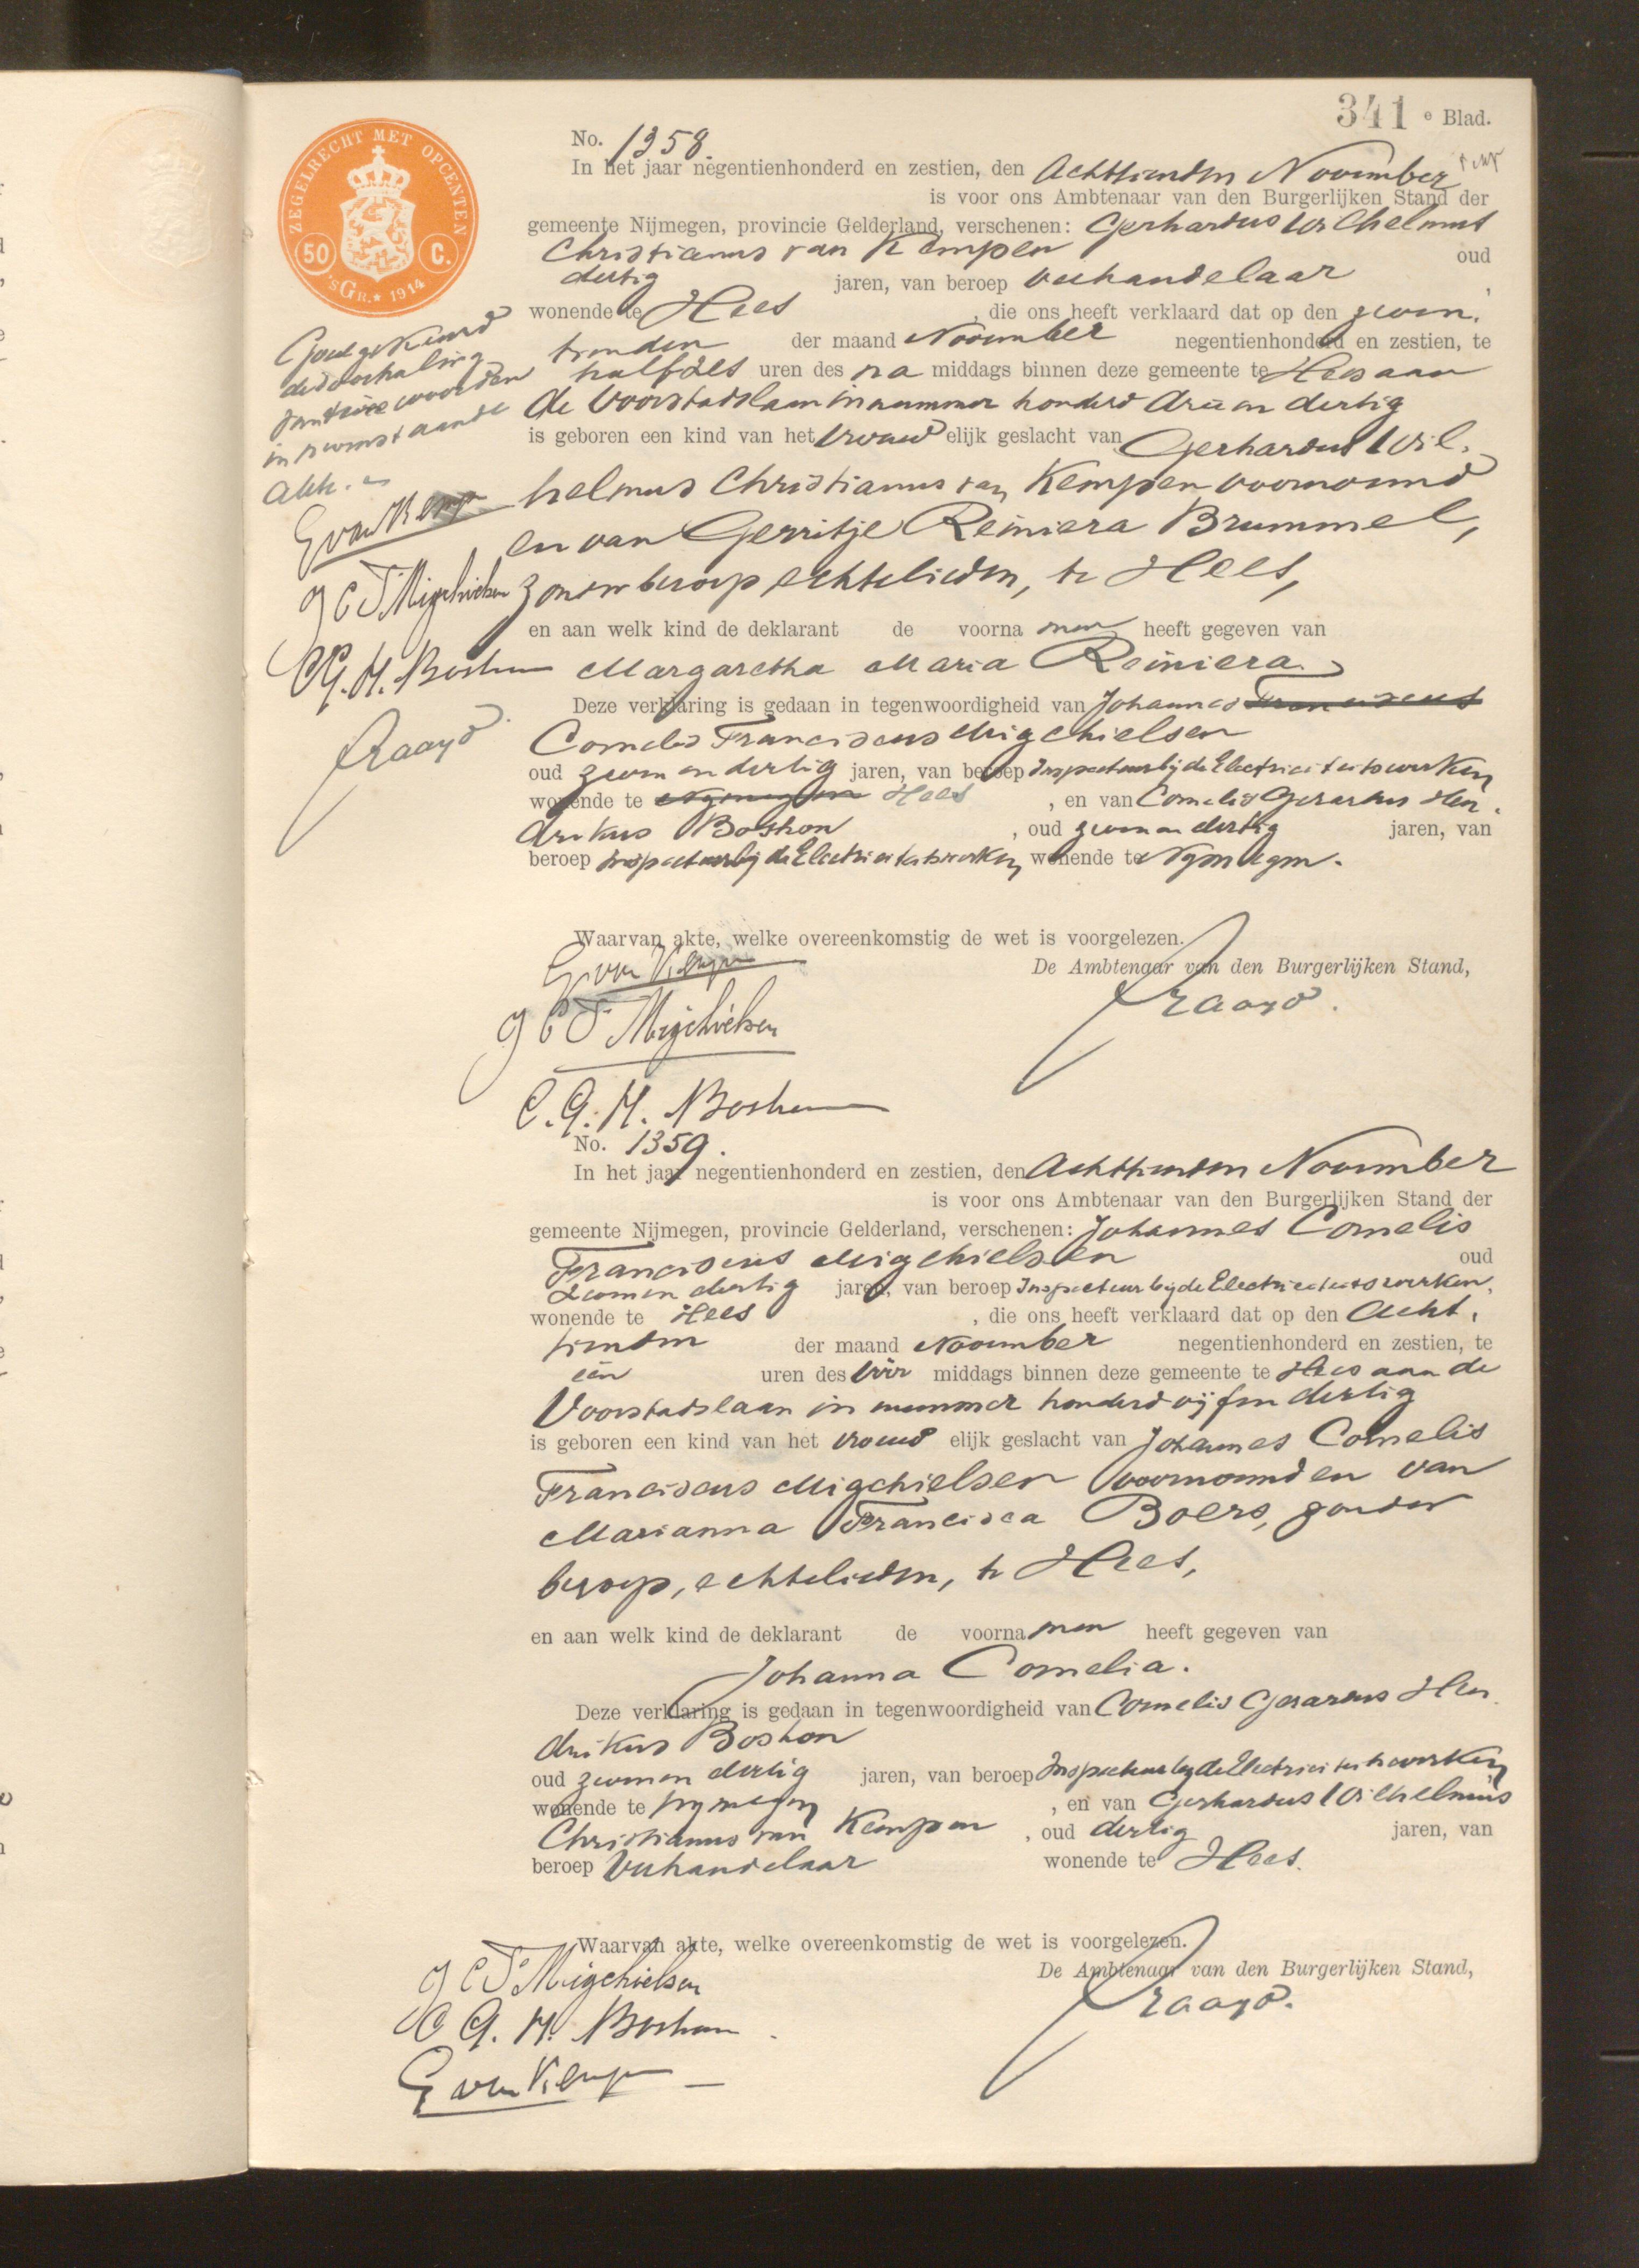 341 e Blad.
ZEGELRECHT MET OPCENTEN
50 C.
'SGR.* 1914
No. 1358.
In het jaar negentienhonderd en zestien, den Achttienden November
is voor ons Ambtenaar van den Burgerlijken Stand der
gemeente Nijmegen, provincie Gelderland, verschenen: Gerhardus Wilhelmus
Christianus van Kempen oud
dertig jaren, van beroep veehandelaar,
wonende te Hees, die ons heeft verklaard dat op den zeven-
tienden der maand November negentienhonderd en zestien, te
half zes uren des na middags binnen deze gemeente te Hees aan
de Voorstadslaan in nummer honderd drie en dertig
is geboren een kind van het vrouw elijk geslacht van Gerhardus Wil-
helmus Christianus van Kempen voornoemd
en van Gerritje Reiniera Brummel,
zonder beroep, echtelieden, te Hees,
en aan welk kind de deklarant de voorna men heeft gegeven van
Margaretha Maria Reiniera.
Deze verklaring is gedaan in tegenwoordigheid van Johannes Franciscus
Cornelis Franciscus Migchielsen
oud zeven en dertig jaren, van beroep Inspecteur bij de Electriciteitswerken
wonende te Nijmegen Hees, en van Cornelis Gerardus Hen-
drikus Boshon, oud zeven en dertig jaren, van
beroep Inspecteur bij de Electriciteitswerken, wonende te Nijmegen.
Goedgekeurd
de doorhaling
van twee woorden
in nevenstaande
akte.
G van Kemp
J C F Migchielsen
C. G. H. Boshon
Waarvan akte, welke overeenkomstig de wet is voorgelezen.
De Ambtenaar van den Burgerlijken Stand,
G van Kempen
J C F Migchielsen
C. G. H. Boshon
No. 1359.
In het jaar negentienhonderd en zestien, den Achttienden November
is voor ons Ambtenaar van den Burgerlijken Stand der
gemeente Nijmegen, provincie Gelderland, verschenen: Johannes Cornelis
Franciscus Migchielsen oud
zeven en dertig jaren, van beroep Inspecteur bij de Electriciteitswerken,
wonende te Hees, die ons heeft verklaard dat op den Acht-
tienden der maand November negentienhonderd en zestien, te
één uren des vóór middags binnen deze gemeente te Hees aan de
Voorstadslaan in nummer honderd vijf en dertig
is geboren een kind van het vrouw elijk geslacht van Johannes Cornelis
Franciscus Migchielsen voornoemd en van
Marianna Francisca Boers, zonder
beroep, echtelieden, te Hees,
en aan welk kind de deklarant de voorna men heeft gegeven van
Johanna Cornelia.
Deze verklaring is gedaan in tegenwoordigheid van Cornelis Gerardus Hen-
drikus Boshon
oud zeven en dertig jaren, van beroep Inspecteur bij de Electriciteitswerken
wonende te Nijmegen, en van Gerhardus Wilhelmus
Christianus van Kempen, oud dertig jaren, van
beroep Veehandelaar wonende te Hees.
Waarvan akte, welke overeenkomstig de wet is voorgelezen.
De Ambtenaar van den Burgerlijken Stand,
J C F Migchielsen
C G. H. Boshon
G van Kempen